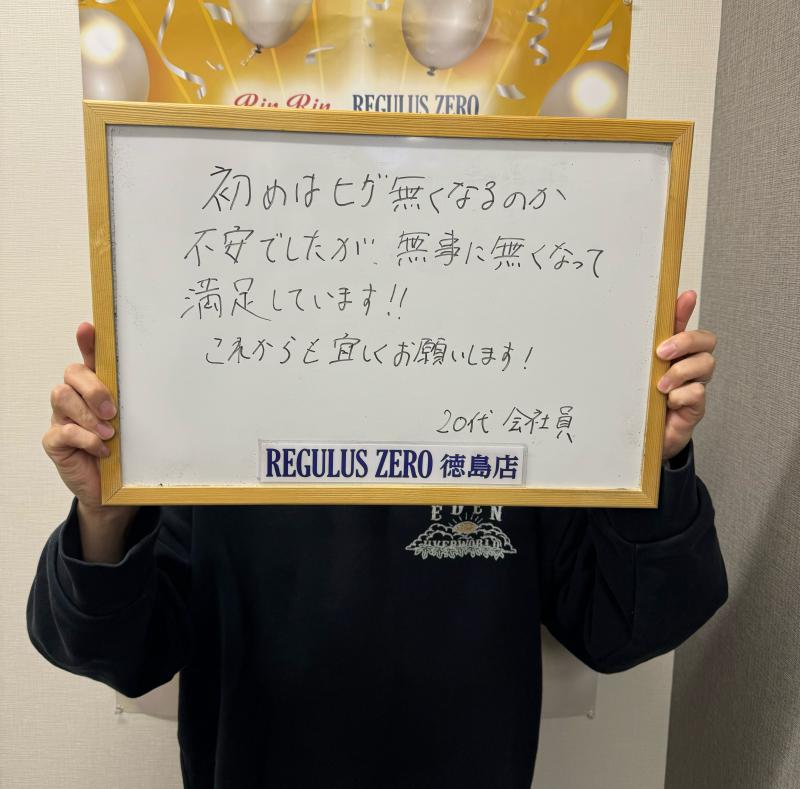 Rin Rin REGULUS ZERO
初めはヒゲ無くなるのか
不安でしたが、無事に無くなって
満足しています!!
これからも宜しくお願いします!
20代 会社員
REGULUS ZERO 徳島店
EDEN
UVERWORLD